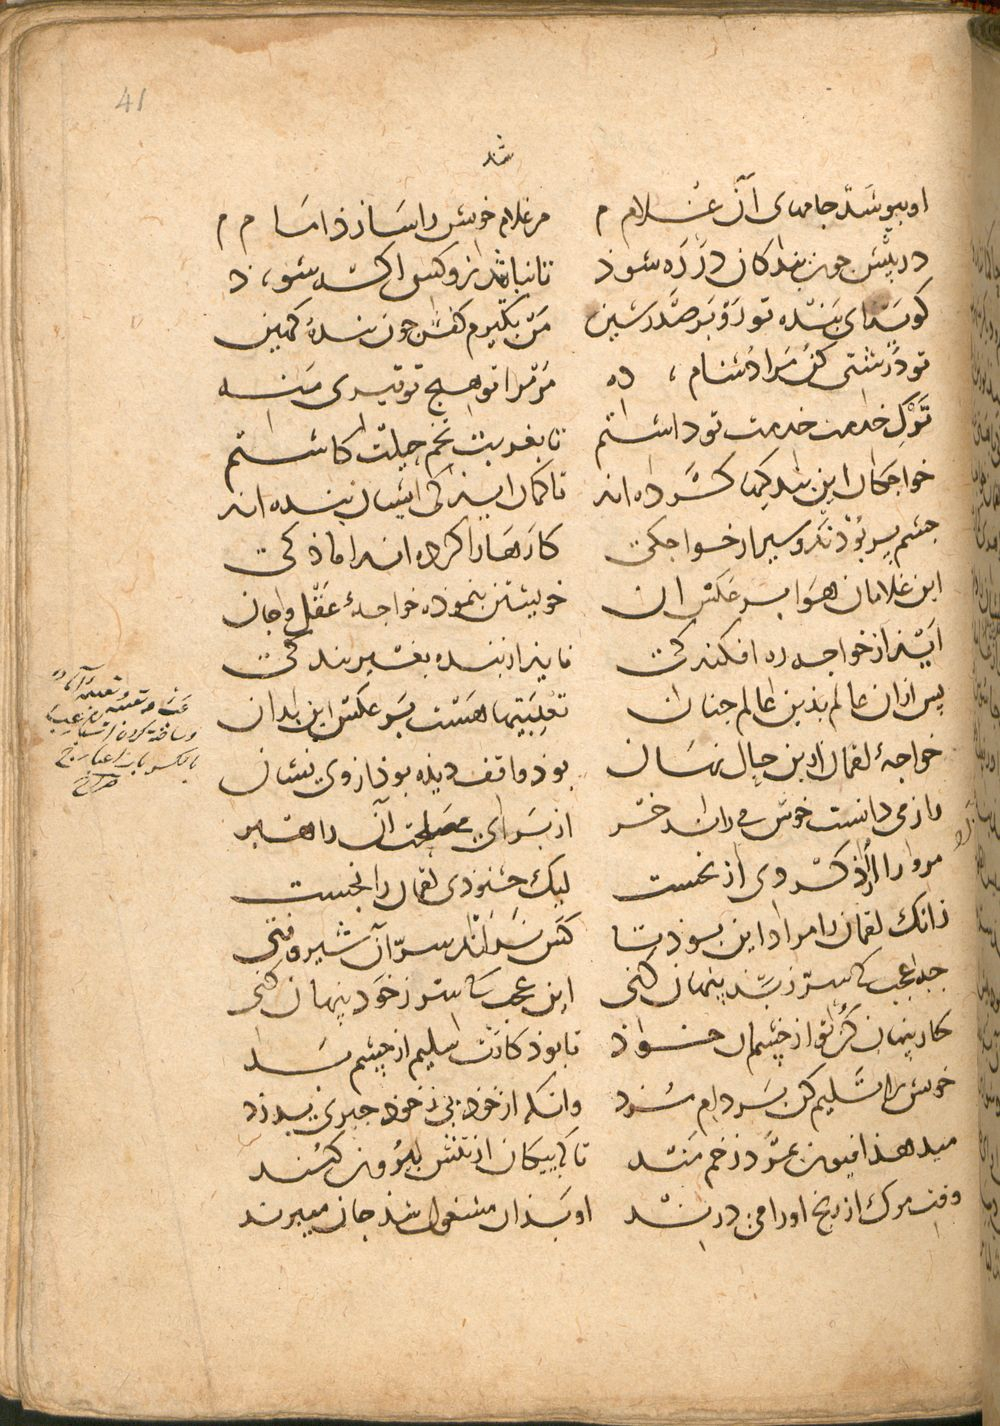 41
شد
او بپوشد جامهای آن غلام مر غلام خویش را سازد امام
در پیش چون بندکان در ره شوذ تا نباید زو کس اکه شوذ
کوید ای بنده تو رو بر صدر شین من بکیرم کفش چون بندهٔ کمین
تو درشتی کن مرا دشنام ده مر مرا تو هیچ توقیری منه
ترک خدمت خدمت تو داشتم تا بغربت تخم حیلت کاشتم
خواجکان این بندکیها کرده اند تا کمان اید کی ایشان بنده اند
چشم پر بوذند و سیر از خواجکی کارها را کرده اند امادکی
این غلامان هوا بر عکس ان خویشتن بنموده خواجهٔ عقل و جان
ایذ از خواجه ره افکندکی نایذ از بنده بغیر بندکی
پس ازان عالم بذین عالم چنان تعبیتها هست بر عکس این بدان
خواجهٔ لقمان ازین حال نهان بوذ واقف دیذه بوذ از وی نشان
راز می دانست خوش می راند خر از برای مصلحت آن راهبر
مرو را ازاذ کردی از نخست لیک خشنوذی لقمان را بجست
زانک لقمان را مراد این بوذ تا کس نداند سر آن شیر و فتی
چه عجب کی سر ز بد پنهان کنی این عجب کی سر ز خود پنهان کنی
کار پنهان کن تو از چشمان خوذ تا بوذ کارت سلیم از چشم بد
خویش را تسلیم کن بر دام مزد وانکه از خوذ بی ز خوذ چیزی بدزد
میدهند افیون بمرد زخم مند تا کی پیکان از تنش بیرون کنند
وقت مرک از رنج او را می درند او بذان مشغول شذ جان میبرند